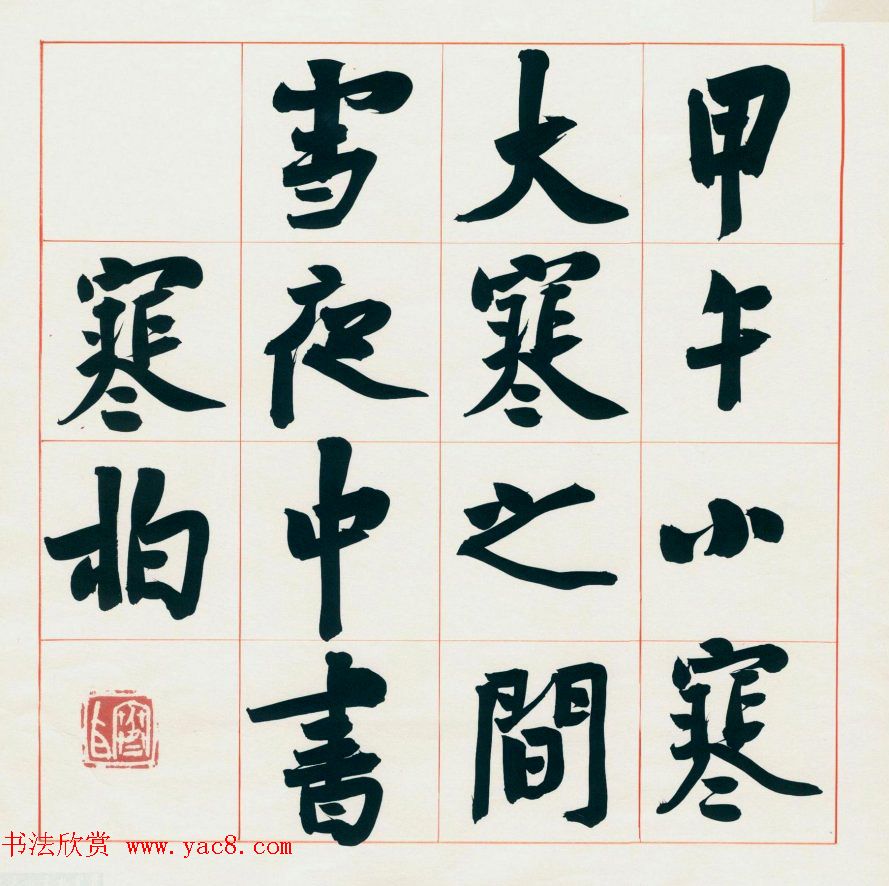 甲午小寒
大寒之間
雪夜中書
寒柏
书法欣赏 www.yac8.com